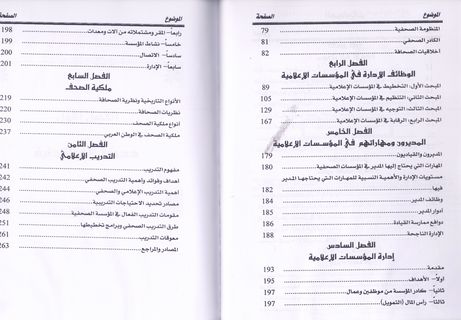 الموضوع الصفحة
المنظومة الصحفية 79
الكادر الصحفي 81
أخلاقيات الصحافة 82
الفصل الرابع
الوظائف الإدارية في المؤسسات الإعلامية
المبحث الأول: التخطيط في المؤسسات الإعلامية 89
المبحث الثاني: التنظيم في المؤسسات الإعلامية 105
المبحث الثالث: التوجيه في المؤسسات الإعلامية 129
المبحث الرابع: الرقابة في المؤسسات الإعلامية 167
الفصل الخامس
المديرون ومهاراتهم في المؤسسات الإعلامية
المديرون والقياديون 179
المهارات التي يحتاج إليها المدير في المؤسسات الصحفية 180
مستويات الإدارة والأهمية النسبية للمهارات التي يحتاجها المدير
فيها 182
وظائف المدير 184
أدوار المدير 185
دوافع ممارسة القيادة 186
الإدارة الناجحة 188
الفصل السادس
إدارة المؤسسات الإعلامية
مقدمة 193
أولاً- الأهداف 195
ثانياً- كادر المؤسسة من موظفين وعمال 197
ثالثاً- رأس المال (التمويل) 197
الموضوع الصفحة
رابعاً- المقر ومشتملاته من آلات ومعدات 198
خامساً- نشاط المؤسسة 199
سادساً- الاتصال 200
سابعاً- الإدارة 201
الفصل السابع
ملكية الصحف
الأنواع التاريخية ونظرية الصحافة 219
نظريات الصحافة 220
أنواع ملكية الصحف 230
ملكية الصحف في الوطن العربي 237
الفصل الثامن
التدريب الإعلامي
مفهوم التدريب 241
أهداف وفوائد وأهمية التدريب الصحفي 242
أهمية التدريب الإعلامي والصحفي 244
مصادر تحديد الاحتياجات التدريبية 246
مقومات التدريب الفعال في المؤسسة الصحفية 248
طرق التدريب الصحفي وبرامج تخطيطها 251
معوقات التدريب 261
المصادر والمراجع 263